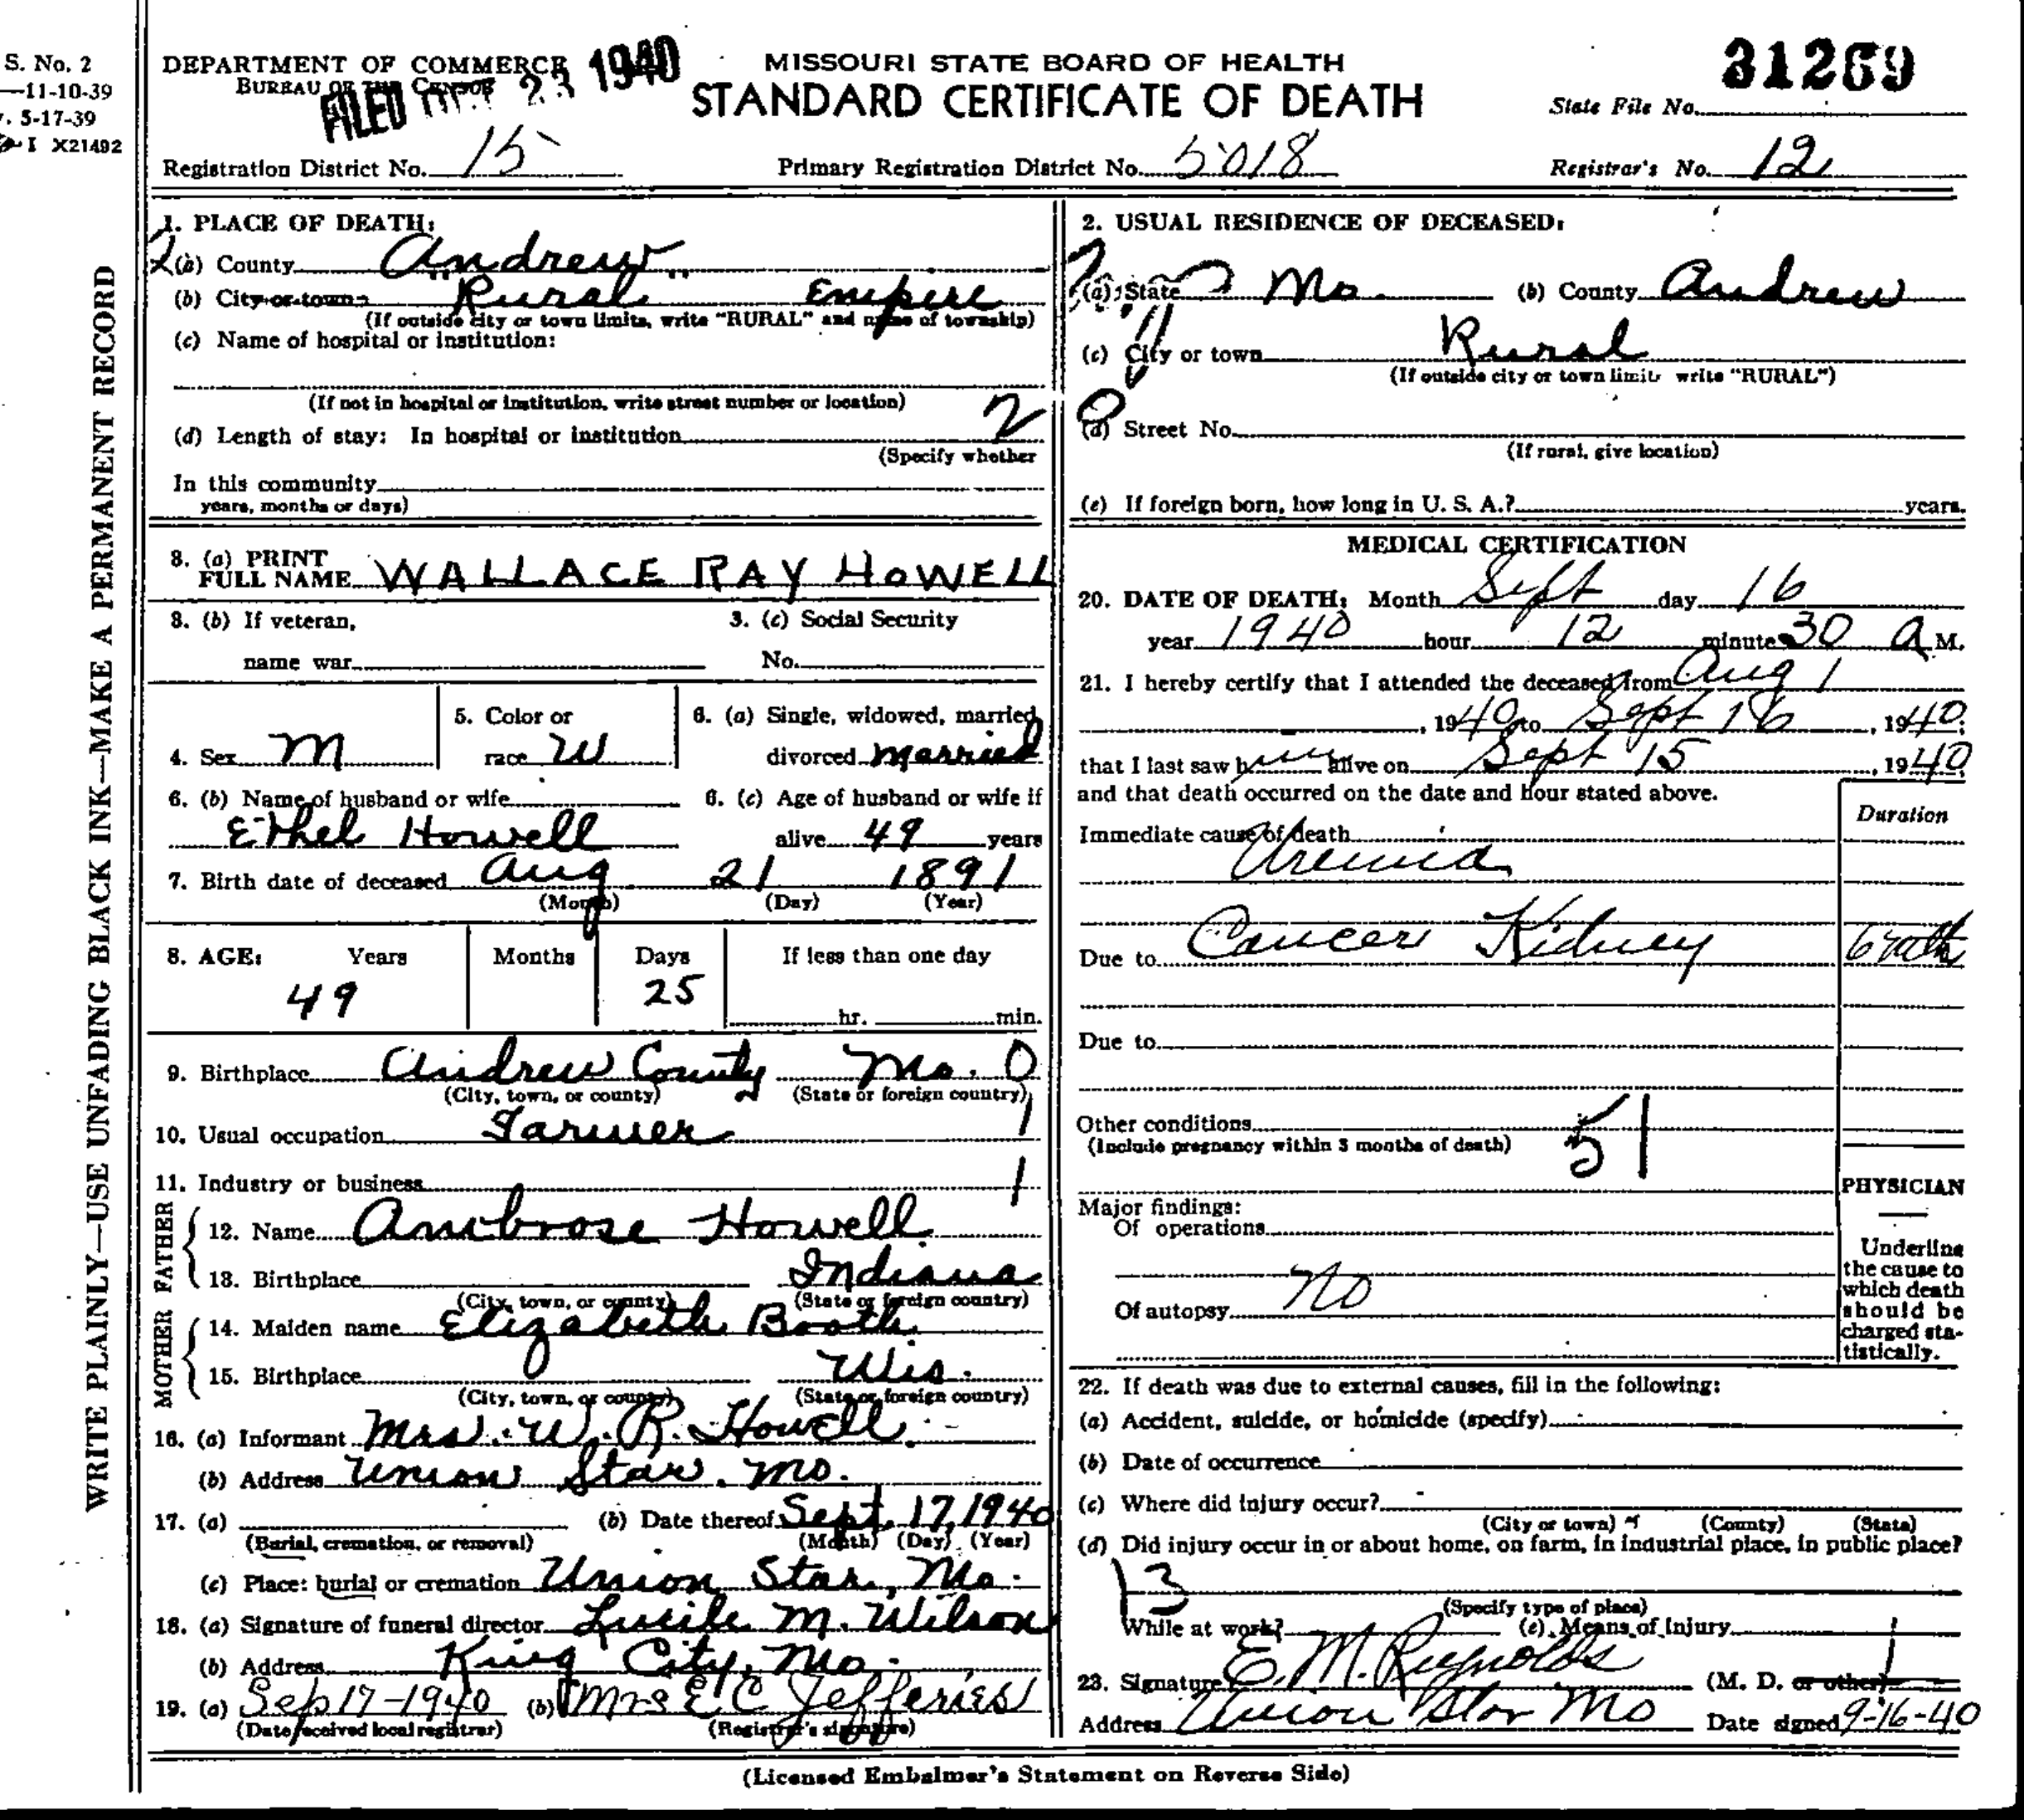 S. No. 2
—11-10-39
. 5-17-39
I X21492
WRITE PLAINLY—USE UNFADING BLACK INK—MAKE A PERMANENT RECORD
DEPARTMENT OF COMMERCE
BUREAU OF THE CENSUS
FILED OCT 23 1940
MISSOURI STATE BOARD OF HEALTH
STANDARD CERTIFICATE OF DEATH
31269
State File No.
Registration District No. 15
Primary Registration District No. 5018
Registrar's No. 12
1. PLACE OF DEATH:
(a) County Andrew
(b) City or town "Rural" Empire
(If outside city or town limits, write "RURAL" and name of township)
(c) Name of hospital or institution:
(If not in hospital or institution, write street number or location)
(d) Length of stay: In hospital or institution 2
(Specify whether
In this community
years, months or days)
3. (a) PRINT
FULL NAME WALLACE RAY HOWELL
3. (b) If veteran,
name war
3. (c) Social Security
No.
4. Sex M
5. Color or
race W
6. (a) Single, widowed, married,
divorced Married
6. (b) Name of husband or wife
Ethel Howell
6. (c) Age of husband or wife if
alive 49 years
7. Birth date of deceased Aug 21 1891
(Month) (Day) (Year)
8. AGE: Years Months Days If less than one day
49 25
hr. min.
9. Birthplace Andrew County Mo. 0
(City, town, or county) (State or foreign country)
10. Usual occupation Farmer 1
11. Industry or business 1
FATHER
12. Name Ambrose Howell
13. Birthplace Indiana
(City, town, or county) (State or foreign country)
MOTHER
14. Maiden name Elizabeth Booth
15. Birthplace Wis.
(City, town, or county) (State or foreign country)
16. (a) Informant Mrs. W. R. Howell
(b) Address Union Star, Mo.
17. (a) (b) Date thereof Sept. 17, 1940
(Burial, cremation, or removal) (Month) (Day) (Year)
(c) Place: burial or cremation Union Star, Mo.
18. (a) Signature of funeral director Lucile M. Wilson
(b) Address King City, Mo.
19. (a) Sep 17-1940 (b) Mrs E C Jefferies
(Date received local registrar) (Registrar's signature)
2. USUAL RESIDENCE OF DECEASED:
(a) State Mo. (b) County Andrew
(c) City or town Rural
(If outside city or town limits write "RURAL")
(d) Street No.
(If rural, give location)
(e) If foreign born, how long in U. S. A.? years.
MEDICAL CERTIFICATION
20. DATE OF DEATH: Month Sept day 16
year 1940 hour 12 minute 30 a M.
21. I hereby certify that I attended the deceased from Aug 1
, 1940 to Sept 16, 1940;
that I last saw him alive on Sept 15, 1940
and that death occurred on the date and hour stated above.
Duration
Immediate cause of death
Uremia
Due to Cancer Kidney 6 mth
Due to
Other conditions
(Include pregnancy within 3 months of death)
51
PHYSICIAN
Major findings:
Of operations
Of autopsy no
Underline
the cause to
which death
should be
charged sta-
tistically.
22. If death was due to external causes, fill in the following:
(a) Accident, suicide, or homicide (specify)
(b) Date of occurrence
(c) Where did injury occur?
(City or town) (County) (State)
(d) Did injury occur in or about home, on farm, in industrial place, in public place?
13
(Specify type of place)
While at work? (e) Means of injury
23. Signature E. M. Reynolds (M. D. or other)
Address Union Star Mo Date signed 9-16-40
(Licensed Embalmer's Statement on Reverse Side)